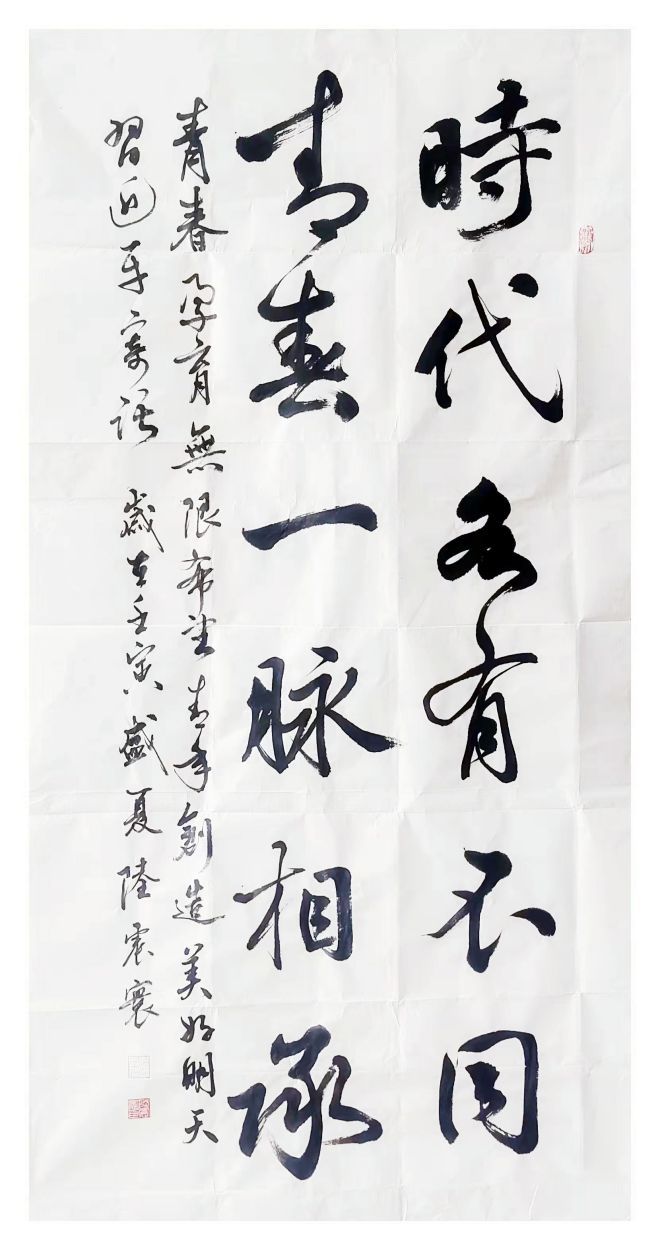 時代各有不同
青春一脉相承
青春孕育無限希望青年創造美好明天
習近平寄語 歲在壬寅盛夏陸震寰